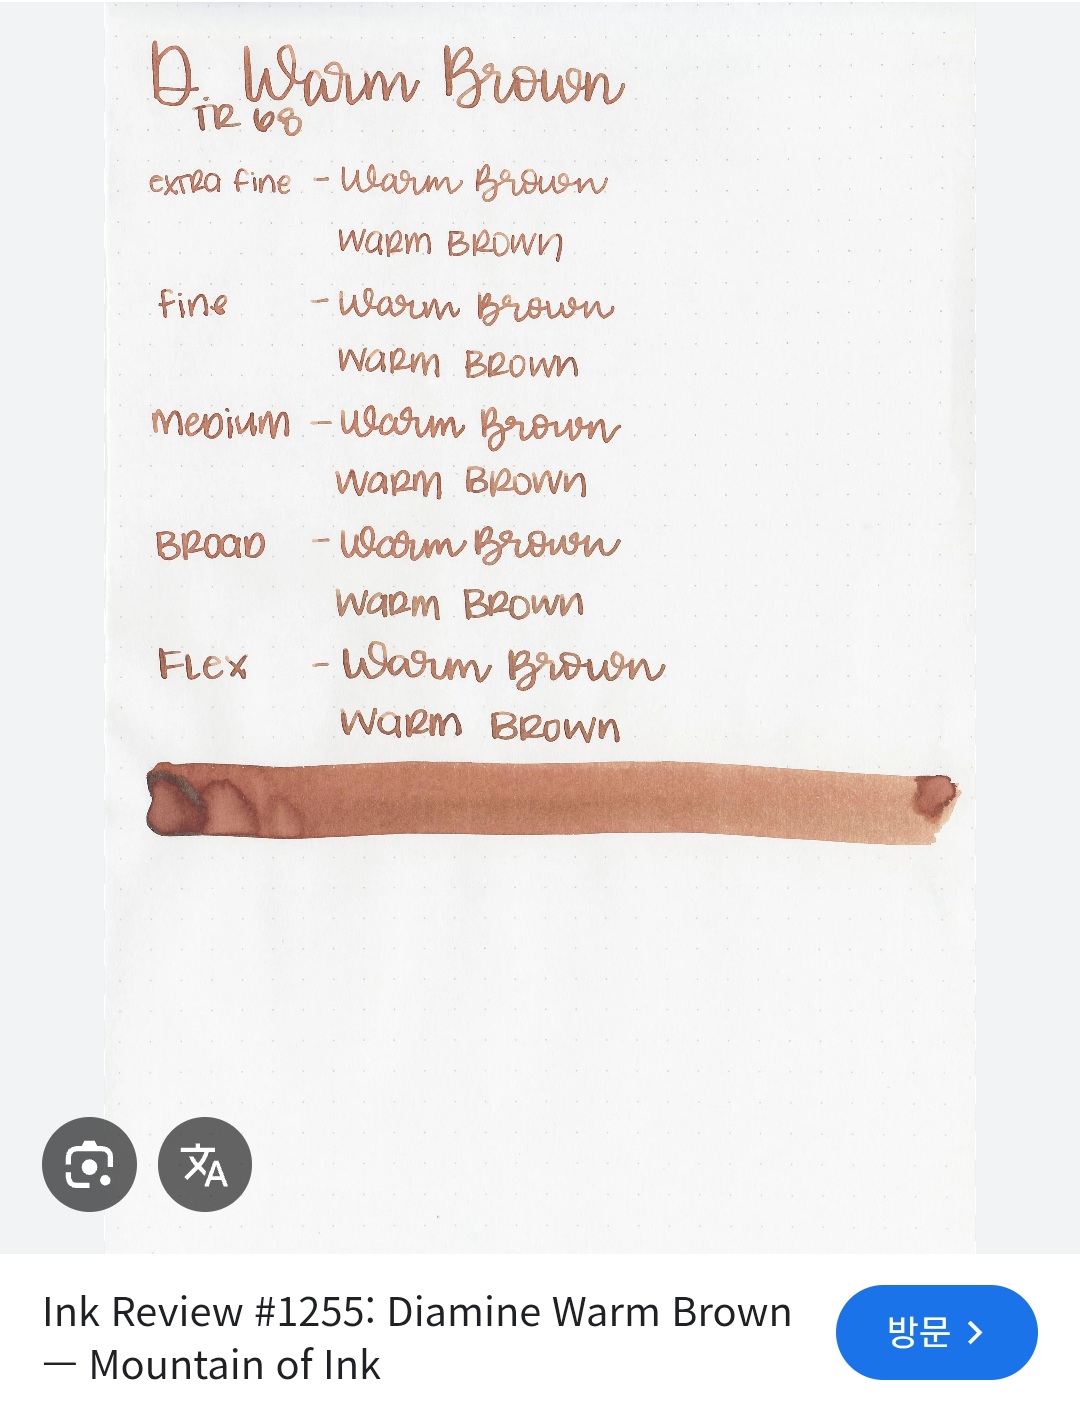 D. Warm Brown
TR 68
extra fine - Warm Brown
Warm Brown
fine - Warm Brown
Warm Brown
Medium - Warm Brown
Warm Brown
Broad - Warm Brown
Warm Brown
Flex - Warm Brown
Warm Brown
Ink Review #1255: Diamine Warm Brown
— Mountain of Ink
방문